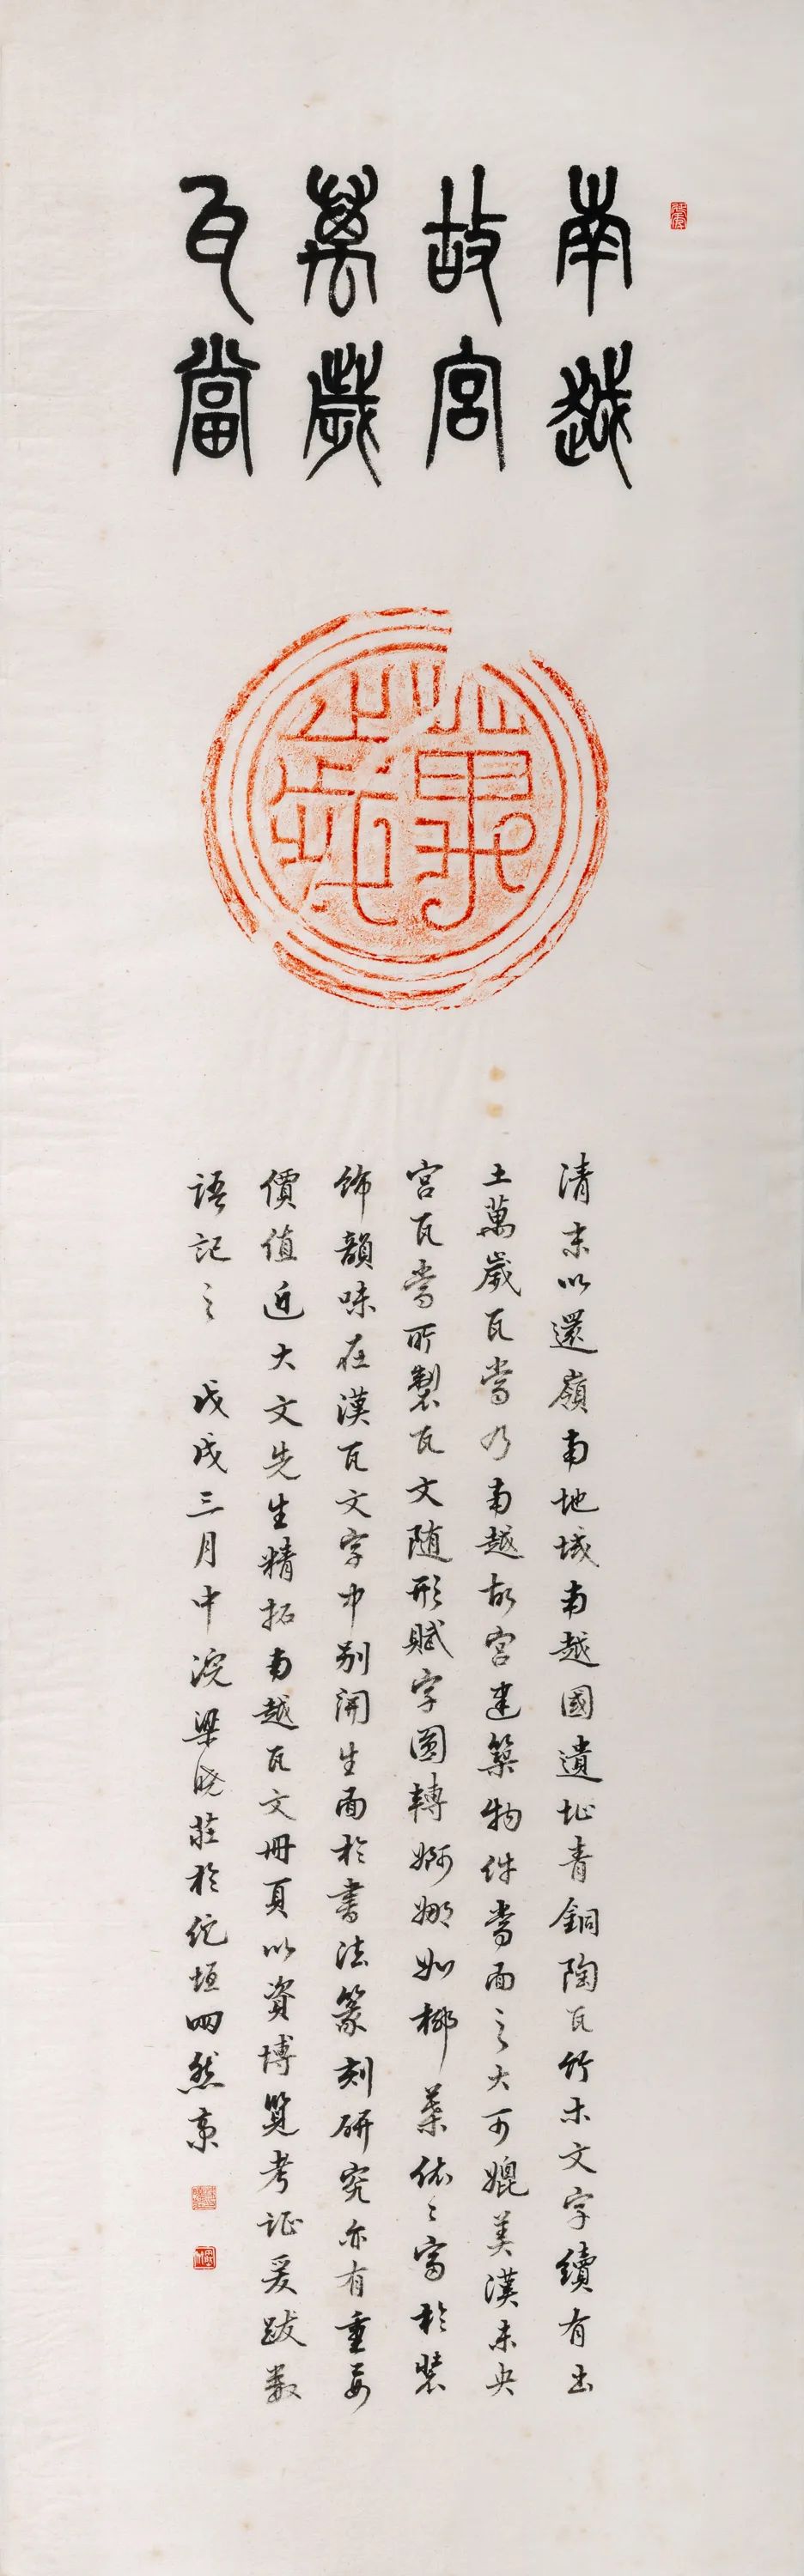 南越
故宮
萬歲
瓦當
萬歲
清末以還嶺南地域南越國遺址青銅陶瓦竹木文字續有出
土萬歲瓦當乃南越故宮建築物件當面之大可媲美漢未央
宮瓦當所製瓦文隨形賦字圓轉婀娜如椰葉依々富於裝
飾韻味在漢瓦文字中別開生面於書法篆刻研究亦有重要
價值近大文先生精拓南越瓦文冊頁以資博覽考證爰跋數
語記之 戊戌三月中浣梁曉莊於佗垣四然齋